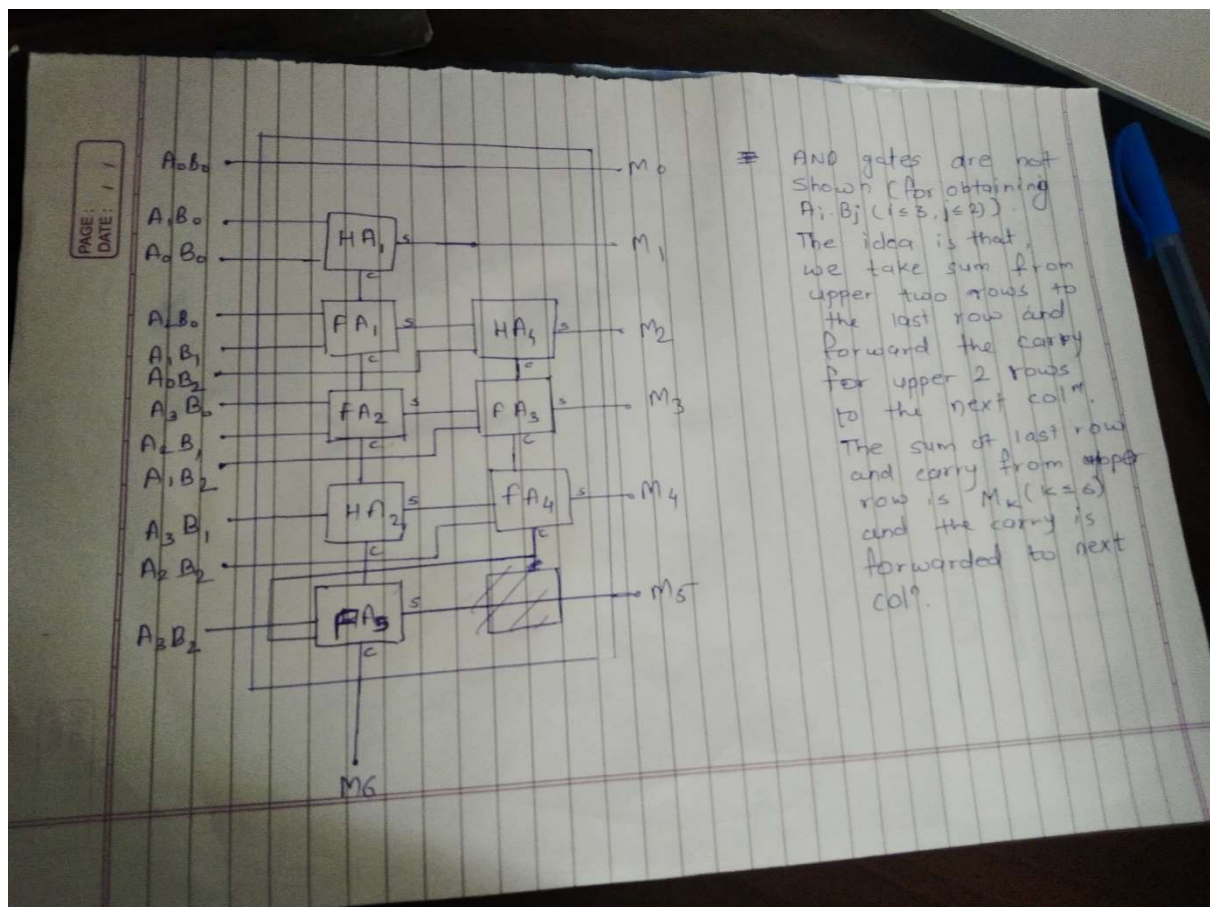 PAGE:
DATE: / /
A₀B₀
M₀
A₁B₀
A₀B₀
HA₁
S
C
M₁
A₂B₀
A₁B₁
A₀B₂
FA₁
S
C
HA₄
S
C
M₂
A₃B₀
A₂B₁
A₁B₂
FA₂
S
C
FA₃
S
C
M₃
A₃B₁
A₂B₂
HA₂
S
C
FA₄
S
C
M₄
A₃B₂
FA₅
S
C
M₅
M6
AND gates are not
shown (for obtaining
Ai.Bj (i≤3, j≤2)).
The idea is that,
we take sum from
upper two rows to
the last row and
forward the carry
for upper 2 rows
to the next colⁿ.
The sum of last row
and carry from upper
row is Mₖ (k≤5)
and the carry is
forwarded to next
colⁿ.